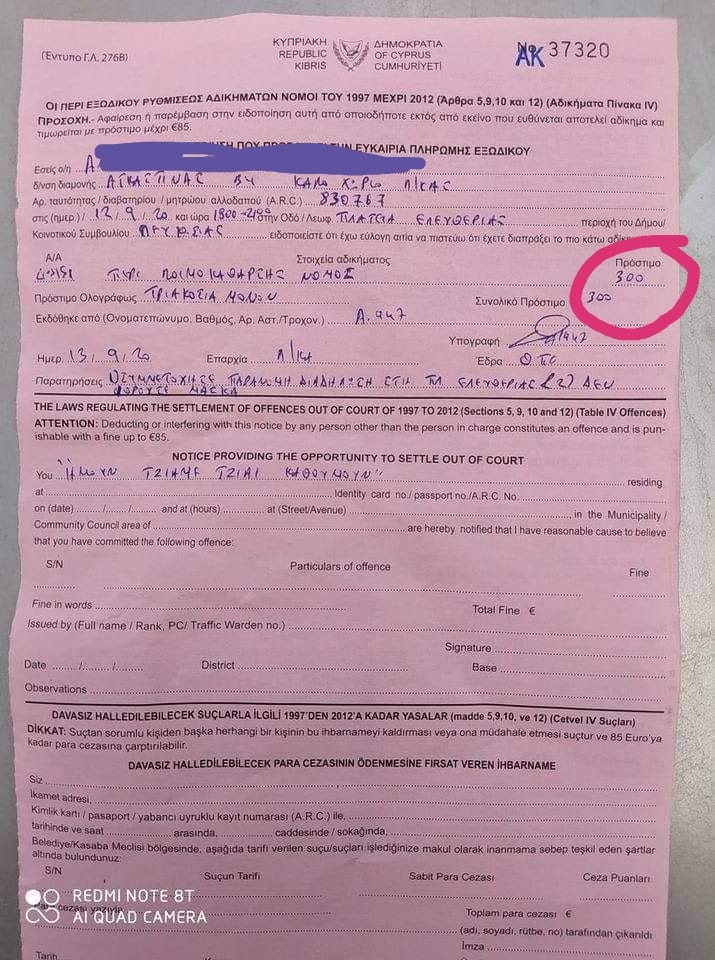 (Έντυπο Γ.Λ. 276Β)
ΚΥΠΡΙΑΚΗ ΔΗΜΟΚΡΑΤΙΑ
REPUBLIC OF CYPRUS
KIBRIS CUMHURİYETİ
№ 37320
ΑΚ
ΟΙ ΠΕΡΙ ΕΞΩΔΙΚΟΥ ΡΥΘΜΙΣΕΩΣ ΑΔΙΚΗΜΑΤΩΝ ΝΟΜΟΙ ΤΟΥ 1997 ΜΕΧΡΙ 2012 (Άρθρα 5,9,10 και 12) (Αδικήματα Πίνακα IV)
ΠΡΟΣΟΧΗ.- Αφαίρεση ή παρέμβαση στην ειδοποίηση αυτή από οποιοδήποτε εκτός από εκείνο που ευθύνεται αποτελεί αδίκημα και
τιμωρείται με πρόστιμο μέχρι €85.
ΠΟΥ ΕΥΚΑΙΡΙΑ ΠΛΗΡΩΜΗΣ ΕΞΩΔΙΚΟΥ
Εσείς ο/η Α
δ/νση διαμονής
Αρ. ταυτότητας / διαβατηρίου / μητρώου αλλοδαπού (A.R.C.) 830767
στις (ημερ.) 12/9/20 και ώρα 1800-2100 στην Οδό / Λεωφ. ΠΛΑΤΕΙΑ ΕΛΕΥΘΕΡΙΑΣ περιοχή του Δήμου/
Κοινοτικού Συμβουλίου ΛΕΥΚΩΣΙΑΣ ειδοποιείστε ότι έχω εύλογη αιτία να πιστεύω ότι έχετε διαπράξει το πιο κάτω αδίκ
Α/Α Στοιχεία αδικήματος Πρόστιμο
ΠΕΡΙ ΛΟΙΜΟΚΑΘΑΡΣΗΣ ΝΟΜΟΣ 300
Πρόστιμο Ολογράφως ΤΡΙΑΚΟΣΙΑ ΜΟΝΟΝ Συνολικό Πρόστιμο 300
Εκδόθηκε από (Ονοματεπώνυμο, Βαθμός, Αρ. Αστ./Τροχον.) Α.947
Υπογραφή
Ημερ. 13/9/20 Επαρχία Λ/ΚΑ Έδρα
Παρατηρήσεις ΠΑΡΑΝΟΜΗ ΔΙΑΔΗΛΩΣΗ ΣΤΗ ΠΛ ΕΛΕΥΘΕΡΙΑΣ ΔΕΝ
ΦΟΡΟΥΣΕ ΜΑΣΚΑ
THE LAWS REGULATING THE SETTLEMENT OF OFFENCES OUT OF COURT OF 1997 TO 2012 (Sections 5, 9, 10 and 12) (Table IV Offences)
ATTENTION: Deducting or interfering with this notice by any person other than the person in charge constitutes an offence and is pun-
ishable with a fine up to €85.
NOTICE PROVIDING THE OPPORTUNITY TO SETTLE OUT OF COURT
You "ΗΜΟΥΝ ΤΖΙΑΜΕ ΤΖΙΑΙ ΚΑΘΟΥΜΟΥΝ" residing
at Identity card no./ passport no./A.R.C. No.
on (date) ....../....../...... and at (hours) at (Street/Avenue) in the Municipality /
Community Council area of are hereby notified that I have reasonable cause to believe
that you have committed the following offence:
S/N Particulars of offence Fine
Fine in words Total Fine €
Issued by (Full name / Rank, PC/ Traffic Warden no.)
Signature
Date ....../....../...... District Base
Observations
DAVASIZ HALLEDİLEBİLECEK SUÇLARLA İLGİLİ 1997'DEN 2012'A KADAR YASALAR (madde 5,9,10, ve 12) (Cetvel IV Suçları)
DİKKAT: Suçtan sorumlu kişiden başka herhangi bir kişinin bu ihbarnameyi kaldırması veya ona müdahale etmesi suçtur ve 85 Euro'ya
kadar para cezasına çarptırılabilir.
DAVASIZ HALLEDİLEBİLECEK PARA CEZASININ ÖDENMESİNE FIRSAT VEREN İHBARNAME
Siz
İkamet adresi
Kimlik kartı / pasaport / yabancı uyruklu kayıt numarası (A.R.C.) ile,
tarihinde ve saat arasında, caddesinde / sokağında,
Belediye/Kasaba Meclisi bölgesinde, aşağıda tarifi verilen suçu/suçları işlediğinize makul olarak inanmama sebep teşkil eden şartlar
altında bulundunuz:
S/N Suçun Tarifi Sabit Para Cezası Ceza Puanları
REDMI NOTE 8T
AI QUAD CAMERA
Para cezası yazıyla Toplam para cezası €
(adı, soyadı, rütbe, no) tarafından çıkarıldı
İmza
Tarih Kaza